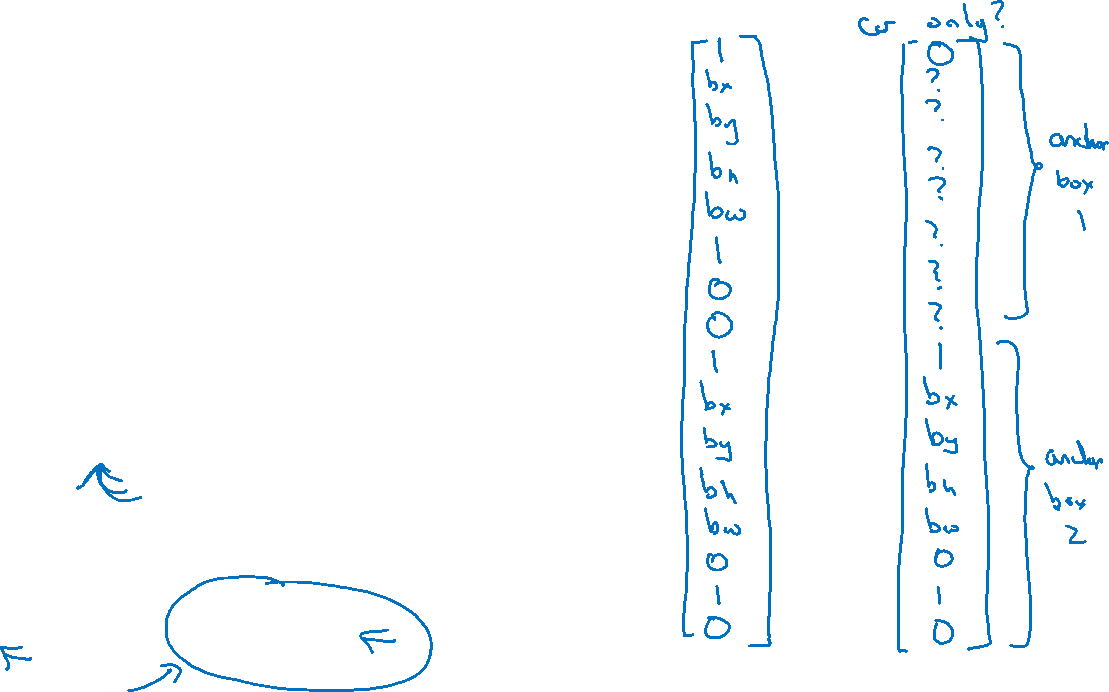 only?
1
bx
by
bh
bw
1
0
0
1
bx
by
bh
bw
0
1
0
0
?
?
?
?
?
?
?
1
bx
by
bh
bw
0
1
0
anchor
box
1
anchor
box
2